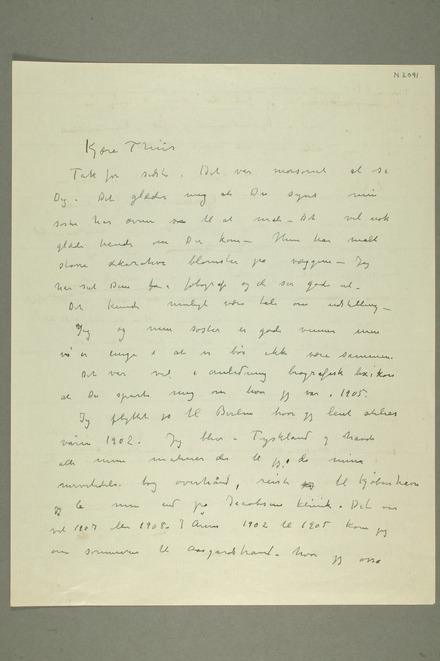 N 2091
Kjære Thiis
Tak for sidst. Det var morsomt at se
Dig. Det glæder mig at Du synes min
søster har evner til at male – Det vil nok
glæde hende om Du kom – Hun har malt
store dekorative blomster på væggene – Jeg
har set dem fotograf og de ser gode ut –
Det kunde muligt være tale om udstilling –
Jeg og min søster er gode venner men
vi er enige i at vi bør ikke være sammen.
Det var vel i anledning biografisk lexikon
at Du spurte mig om hvor jeg var i 1905.
Jeg flyttet jo til Berlin hvor jeg leiet atelier
våren 1902. Jeg blev i Tyskland og havde
alle mine malerier der til jeg, da mine
nerver tog overhånd, reiste til Kjøbenhavn
og la mig ind på Jacobsens klinik. Det var
vel 1907 eller 1908. I Årene 1902 til 1905 kom jeg
om sommeren til Aasgaardstrand – hvor jeg også